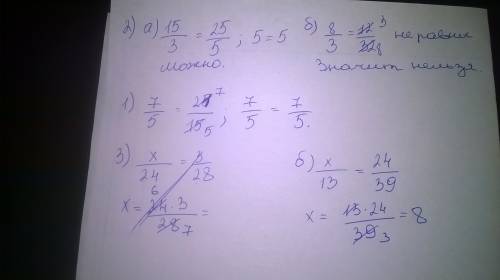 2) а) 15/3 = 25/5 ; 5 = 5
можно.
б) 8/3 = 12 3/32 8 не равны
Значит нельзя.
1) 7/5 = 21 7/15 5 ; 7/5 = 7/5.
3) x/24 = 3/28
x = 24 6 · 3/28 7 =
б) x/13 = 24/39
x = 13 · 24/39 3 = 8